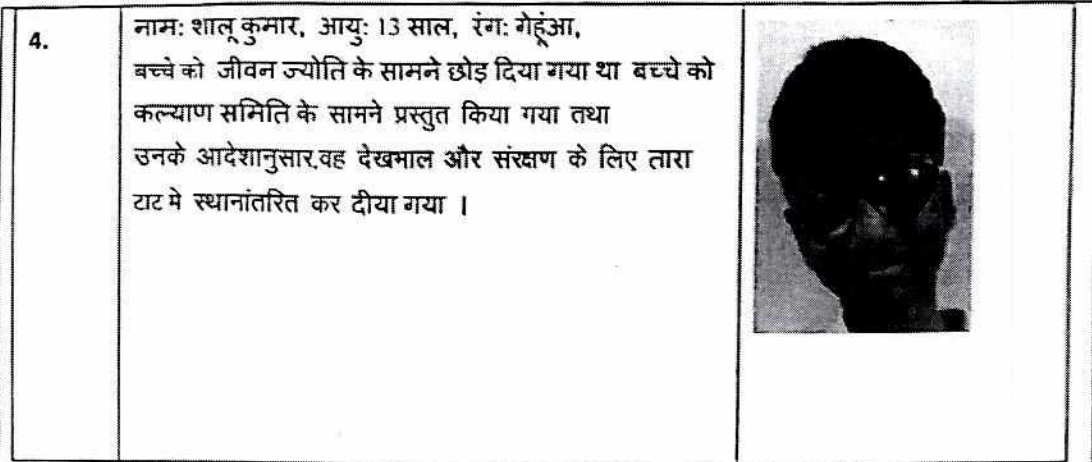 4.
नाम: शालू कुमार, आयु: 13 साल, रंग: गेहूंआ,
बच्चे को जीवन ज्योति के सामने छोड़ दिया गया था बच्चे को
कल्याण समिति के सामने प्रस्तुत किया गया तथा
उनके आदेशानुसार,वह देखभाल और संरक्षण के लिए तारा
टाट मे स्थानांतरित कर दीया गया ।